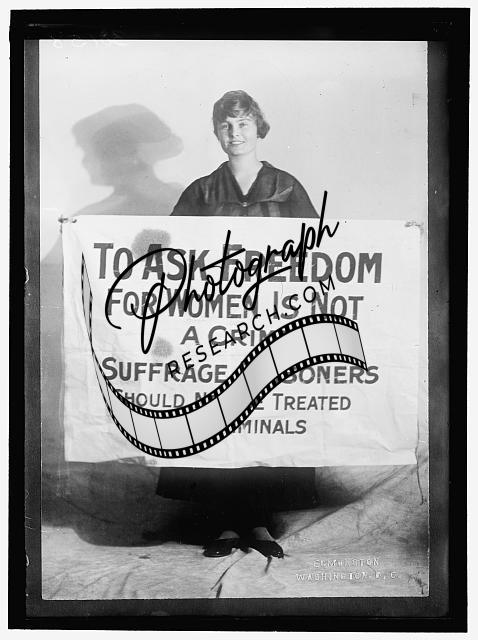 TO ASK FREEDOM
FOR WOMEN IS NOT
A
SUFFRAGE
SHOULD TREATED
Photograph
RESEARCH.COM
EDMONSTON
WASHINGTON, D.C.